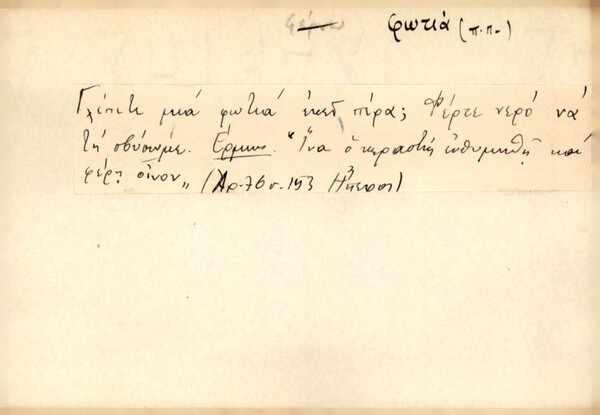 φέρνω φωτιά (π.π.)
Γλέπετε μιά φωτιά ἐκεῖ πέρα; Φέρτε νερό νά
τή σβύσωμε. Ἑρμην. "Ἵνα ὁ κεραστής ἐνθυμηθῇ καί
φέρῃ οἶνον„ (Λρ. 76 σ. 153 Ἤπειρος)